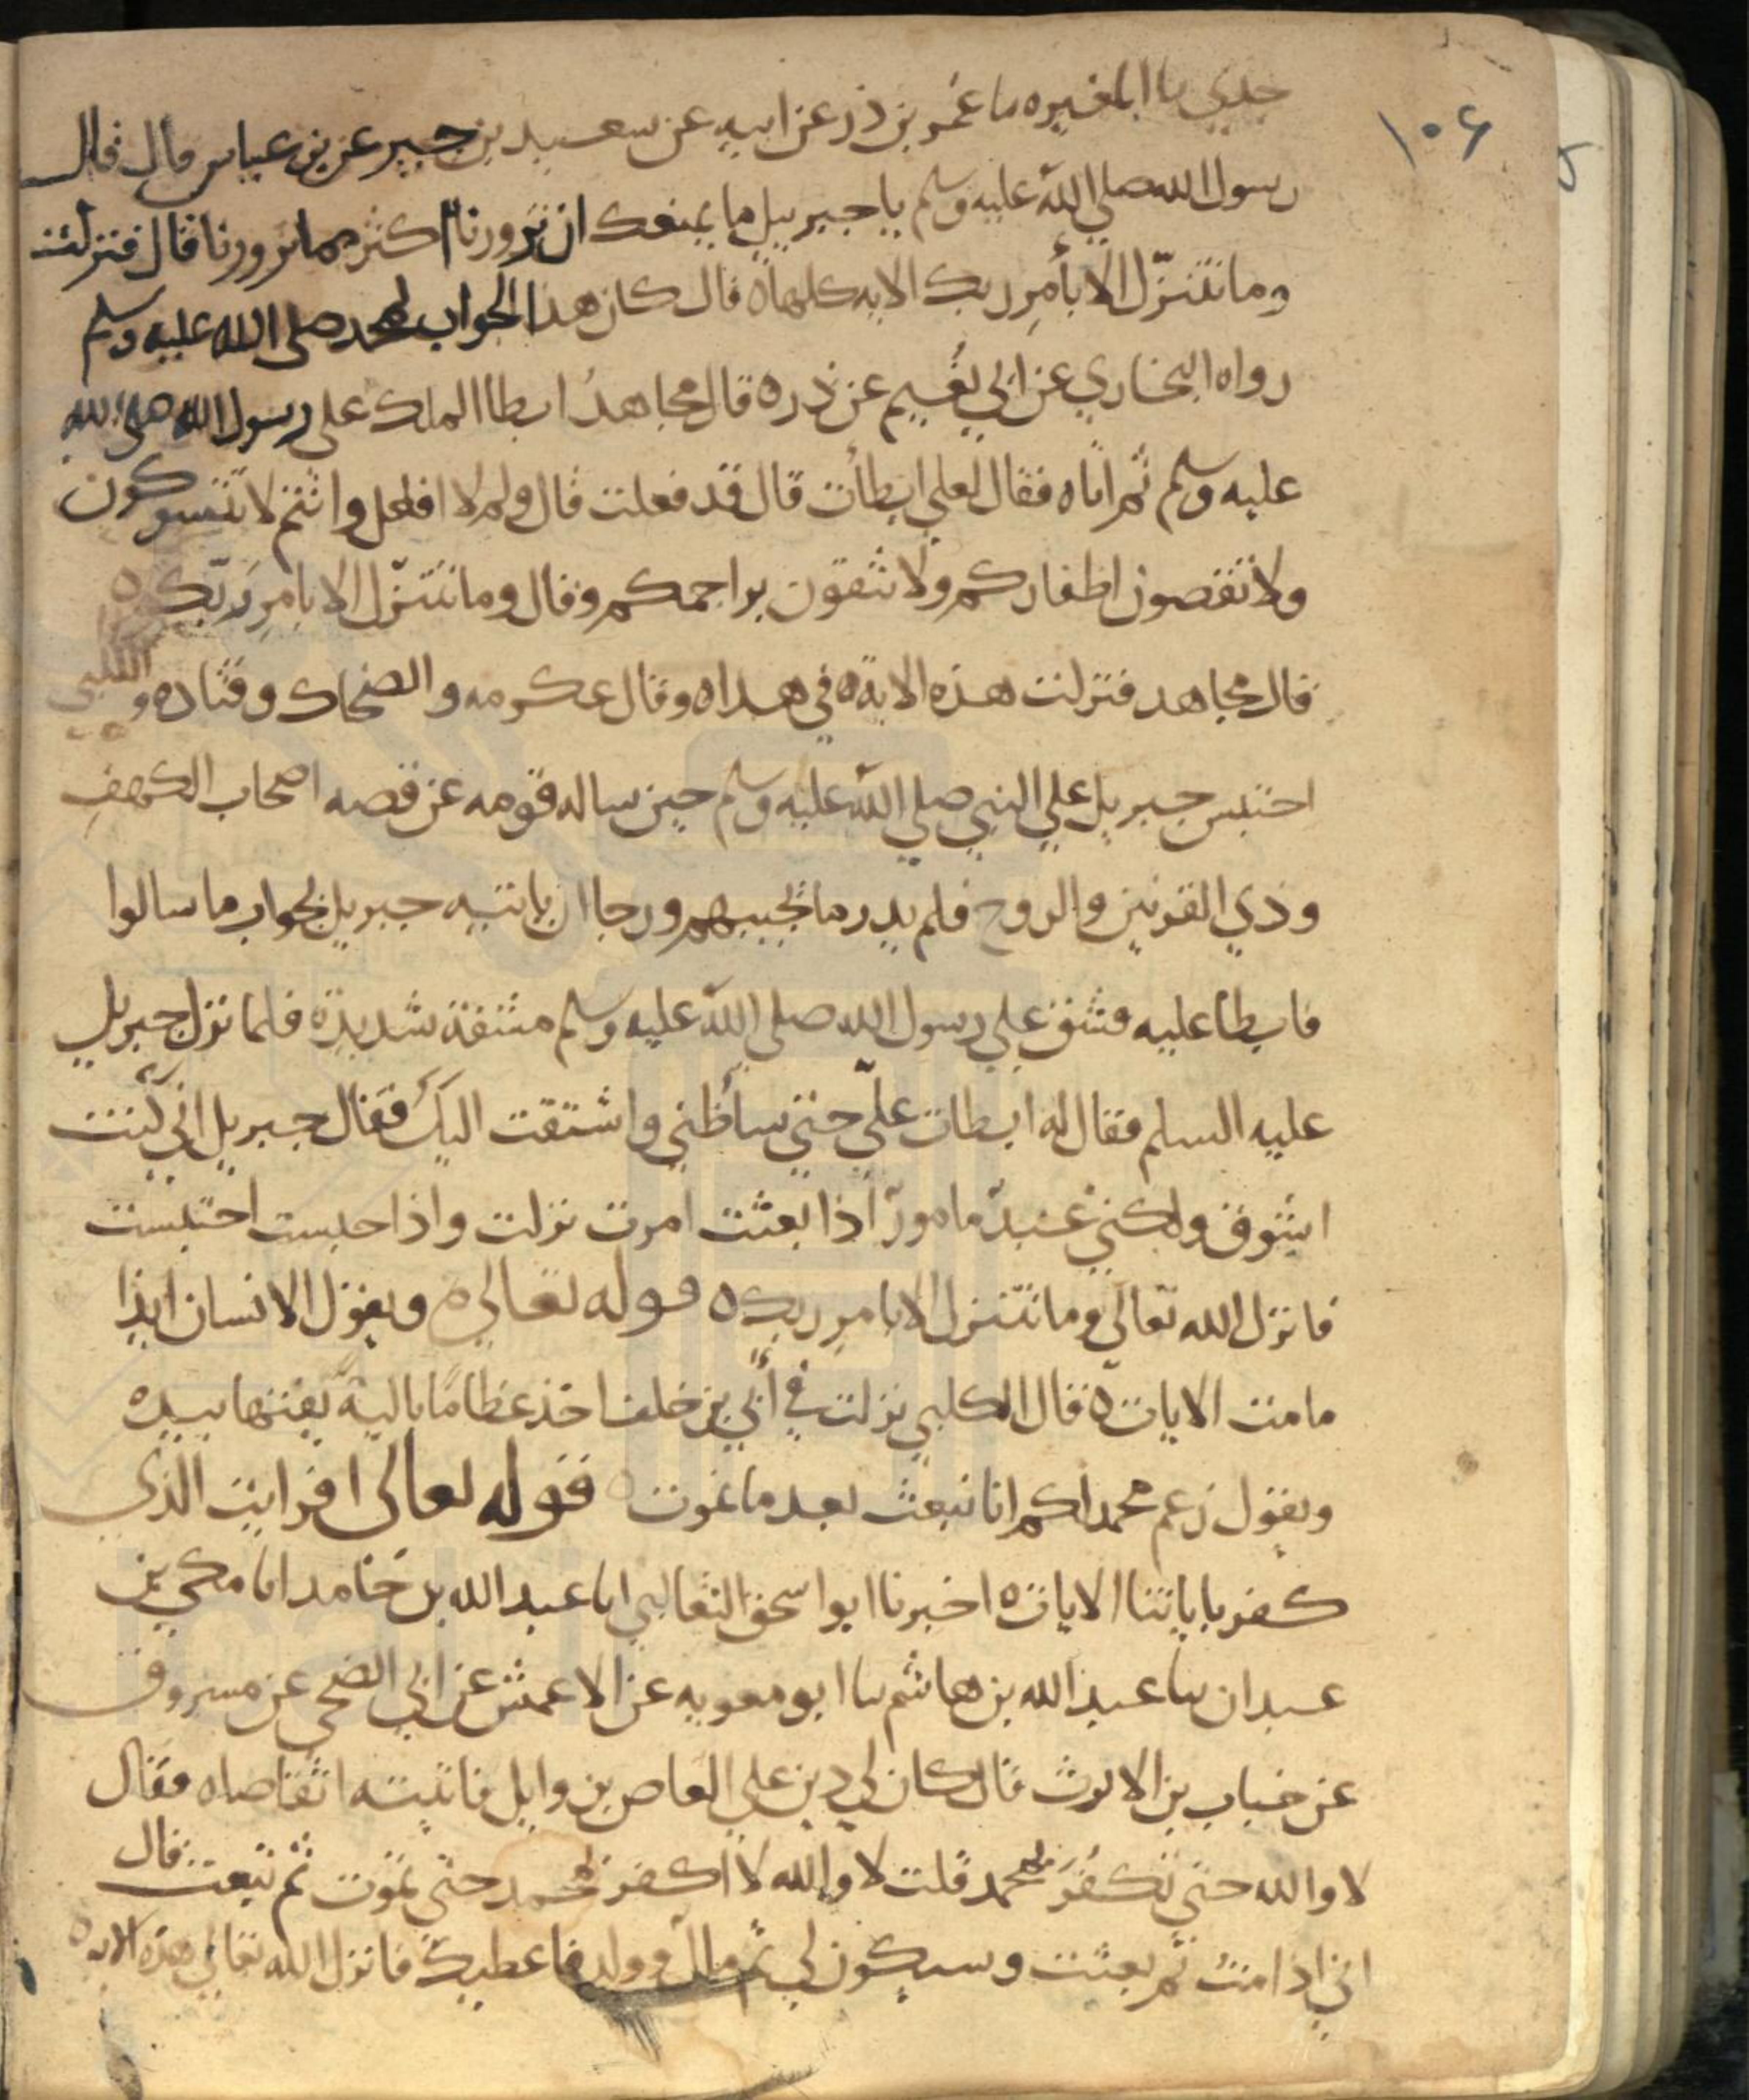 ١٠٤
جدي سا المغيره سا عمر بن ذر عن ابيه عن سعيد بن جبير عن بن عباس قال قال
رسول الله صلي الله عليه وسلم يا جبريل ما يمنعك ان تزورنا اكثر مما تزورنا قال فنزلت
وما نتنزّل الا بأمرِ ربك الايه كلها ٥ قال كان هذا الجواب لمحمد صلى الله عليه وسلم
رواه البخاري عن ابي نُعيم عن ذر ٥ قال مجاهدُ ابطا الملك على رسول الله صلى الله
عليه وسلم ثم اتاه فقال لعلي ابطأت قال قد فعلت قال ولم لا افعل وانتم لا تتسوكون
ولا تقصون اظفاركم ولا تنقون براجمكم وقال وما نتنزّل الا بامرِ ربّك ٥
قال مجاهد فنزلت هذه الاية في هذا ٥ وقال عكرمه والضحاك وقتاده و الكلبي
احتبس جبريل علي النبي صلي الله عليه وسلم حين ساله قومه عن قصه اصحاب الكهفِ
وذي القرنين والروح فلم يدر ما يجيبهم ورجا ان ياتيه جبريل بجواب ما سالوا
فابطا عليه فشق علي رسول الله صلي الله عليه وسلم مشقة شديدة فلما نزل جبريل
عليه السلم فقال له ابطات عليّ حتي ساء ظني واشتقت اليك فقال جبريل اني كنت
اشوق ولكني عبدٌ مامورٌ اذا بعثت امرت نزلت واذا حبست احتبست
فانزل الله تعالي وما نتنزل الا بامرِ ربك ٥ قوله تعالي ٥ ويقول الانسان ائذا
ما مت الايات ٥ قال الكلبي نزلت في أُبي بن خلف اخذ عظامًا باليةً يفتها بيده
ويقول زعم محمد لكم انا نبعث بعد ما نموت ٥ قوله تعالى افرايت الذي
كفر باياتنا الايات ٥ اخبرنا ابو اسحق الثعالبي ابا عبد الله بن حامد ابا مكي بن
عبدان سا عبد الله بن هاشم سا ابو معويه عن الاعمش عن ابي الضحى عن مسروق
عن خباب بن الارث قال كان لي دين علي العاص بن وايل فاتيته اتقاضاه فقال
لا والله حتي تكفُرَ بمحمد قلت لا والله لا اكفر بمحمد حتي تموت ثم تبعث قال
اني اذا مت ثم بعثت وسيكون لي ثم مال وولد فاعطيك فانزل الله تعالي هذه الايه ٥